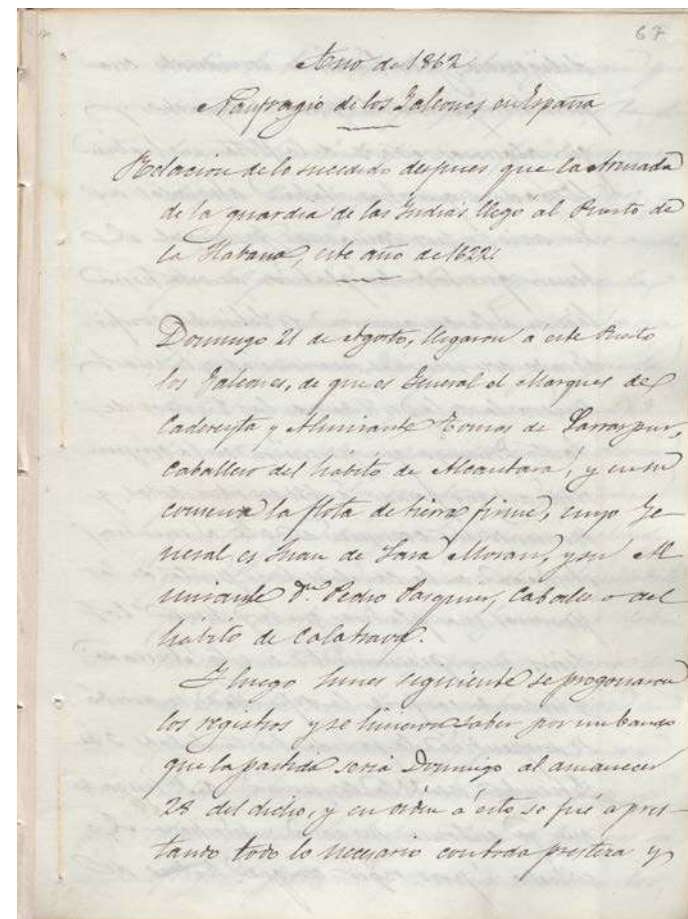 67
Año de 1862
Naufragio de los Galeones en España
Relacion de lo sucedido despues que la Armada
de la guardia de las Indias llegó al Puerto de
la Habana, este año de 1622.
Domingo 21 de Agosto, llegaron á este Puerto
los Galeones, de que es General el Marques de
Cadereyta y Almirante Tomas de Larraspuru,
Caballero del hábito de Alcantara, y en su
conserva la flota de tierra firme, cuyo Ge-
neral es Juan de Lara Moran, y su Al
mirante Dn. Pedro Pasquier, Caballero del
hábito de Calatrava.
I luego Lunes siguiente se pregonaron
los registros y se hicieron saber por un bando
que la partida seria Domingo al amanecer
28 del dicho, y en órden á esto se fué apres-
tando todo lo necesario con toda presteza y